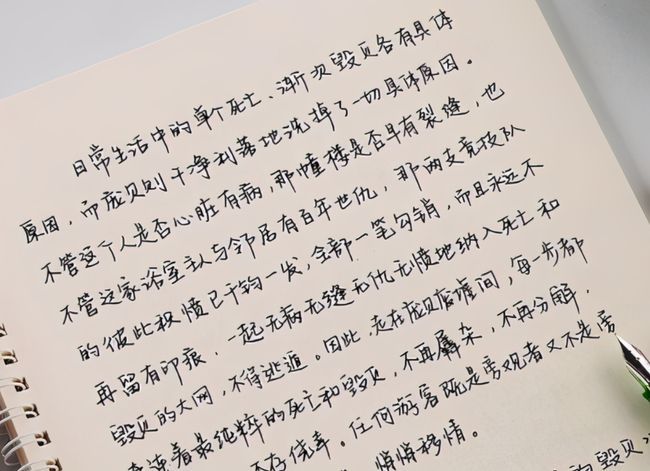 日常生活中的单个死亡、渐次毁灭各有具体
原因，而庞贝则干净利落地洗掉了一切具体原因。
不管这个人是否心脏有病，那幢楼是否早有裂缝，也
不管这家浴室主人与邻居有百年世仇，那两支竞技队
的彼此积愤已千钧一发，全部一笔勾销，而且永远不
再留有印痕，一起无病无缝无仇无愤地纳入死亡和
毁灭的大网，不得逃遁。因此，走在庞贝废墟间，每一步都
牵连着最纯粹的死亡和毁灭，不再羼杂，不再分解，
不存侥幸。任何游客既是旁观者又不是旁
悄悄移情。
的毁灭